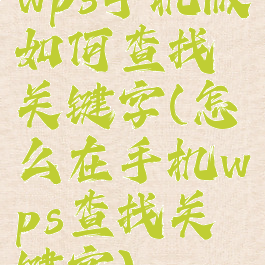 wps手机版
如何查找
关键字(怎
么在手机w
ps查找关
键字)